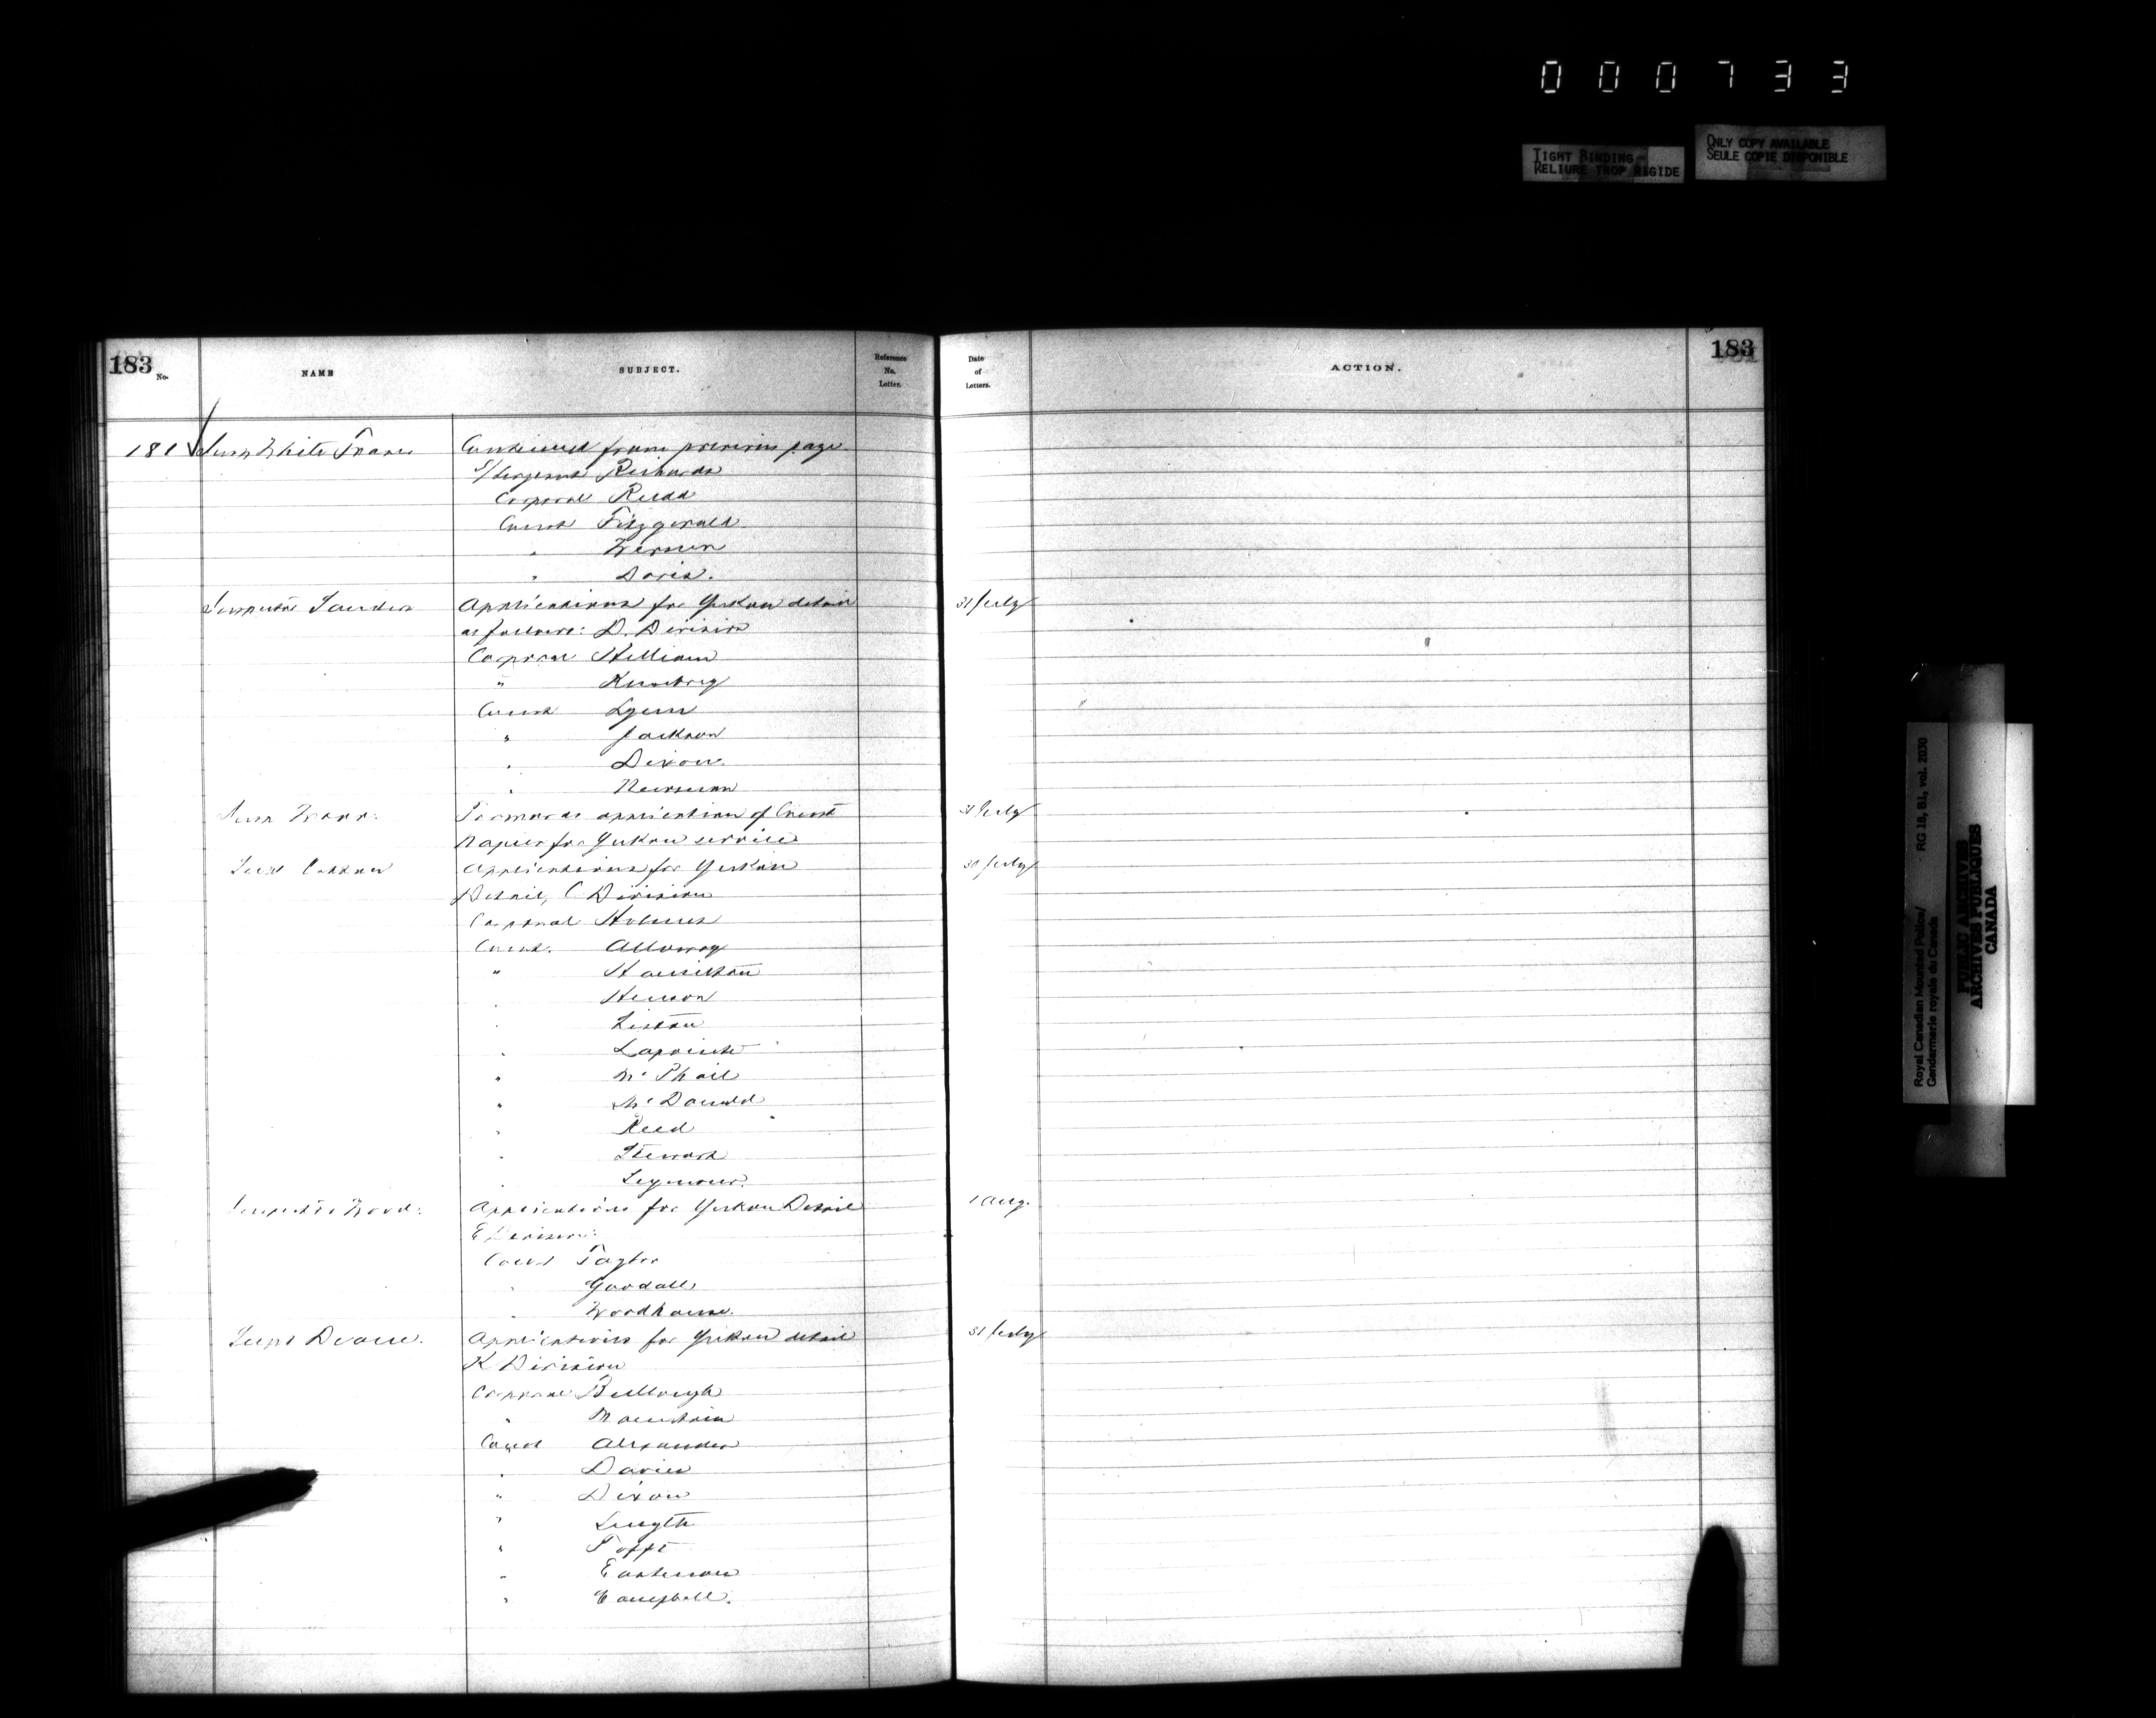 000733
TIGHT BINDING
RELIURE TROP RIGIDE
ONLY COPY AVAILABLE
SEULE COPIE DISPONIBLE
183 No. NAME SUBJECT. Reference No. Letter.
Date of Letters. ACTION. 183
181 White Fraser Continued from previous page
S/Sergeant Richards
Corporal Rudd
Const Fitzgerald
"
" Davis.
Inspector Sanders Applications for Yukon detail 31/July
as follows: D. Division
Corporal Hilliam
"
Const Lynn
" Jackson
" Dixon
" Newman
Forwards application of Const 31 July
Napier for Yukon service
Supt Cotton Applications for Yukon 30/July
Detail, C Division
Corporal Holmes
Const. Alloway
" Hamilton
" Henson
" Liston
" Lapointe
" McPhail
" McDonald
" Reed
" Stewart
" Seymour.
Inspector Wood. Applications for Yukon Detail 1 Aug.
E Division
Const Taylor
" Goodall
" Woodhouse.
Supt Deane. Applications for Yukon detail 31/July
K Division
Corporal Bullough
" Mountain
Const Alexander
" Davies
" Dixon
"
"
"
" Campbell.
Royal Canadian Mounted Police/
Gendarmerie royale du Canada
RG 18, B1, vol. 2030
PUBLIC ARCHIVES
ARCHIVES PUBLIQUES
CANADA